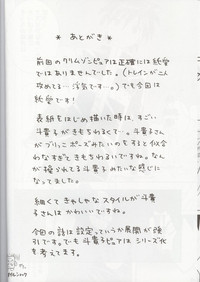 * あとがき *
前回のクリムゾンピュアは正確には純愛
ではありませんでした。(トレインがニん
攻めてる… 浮気です…。)でも今回は
純愛です!
表紙をはじめ描いた時は、すごい
斗貴子がきもちわるくて…。斗貴子さん
がブリっこポーズみたいのをすると似合
わなすぎてきもちわるいですね。なん
か操られてる斗貴子みたいな感じに
なってました。
細くてきゃしゃなスタイルが斗貴
子さんはかわいいですね。
今回の話は設定っていうか展開が強
引です。でも斗貴子ピュアはシリーズ化
を考えてます。